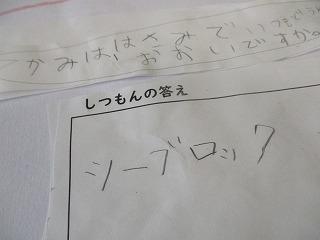 かみは、はさみで
おおいですか。
しつもんの答え
シーブロック